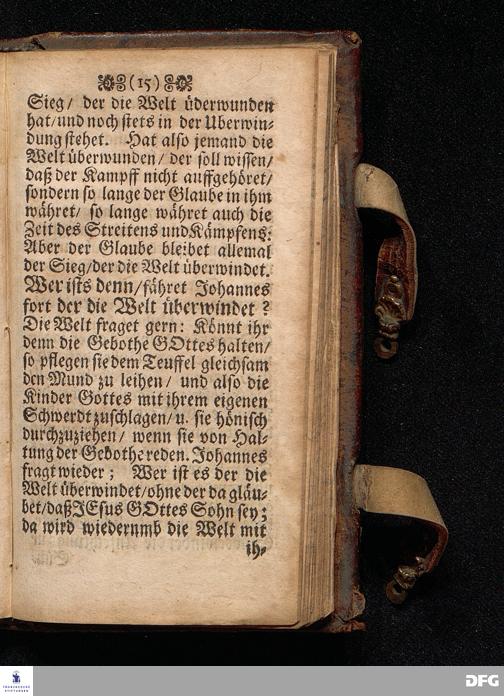 (15)
Sieg/ der die Welt überwunden
hat/und noch stets in der Uberwin-
dung stehet. Hat also jemand die
Welt überwunden/ der soll wissen/
daß der Kampff nicht auffgehöret/
sondern so lange der Glaube in ihm
währet/ so lange währet auch die
Zeit des Streitens und Kämpfens:
Aber der Glaube bleibet allemal
der Sieg/der die Welt überwindet.
Wer ists denn/fähret Johannes
fort der die Welt überwindet?
Die Welt fraget gern: Könnt ihr
denn die Gebothe GOttes halten/
so pflegen sie dem Teuffel gleichsam
den Mund zu leihen/ und also die
Kinder Gottes mit ihrem eigenen
Schwerdt zuschlagen/ u. sie hönisch
durchzuziehen/ wenn sie von Hal-
tung der Gebothe reden. Johannes
fragt wieder; Wer ist es der die
Welt überwindet/ohne der da gläu-
bet/daß JEsus GOttes Sohn sey;
da wird wiederumb die Welt mit
ih-
FRANCKESCHE
STIFTUNGEN
DFG